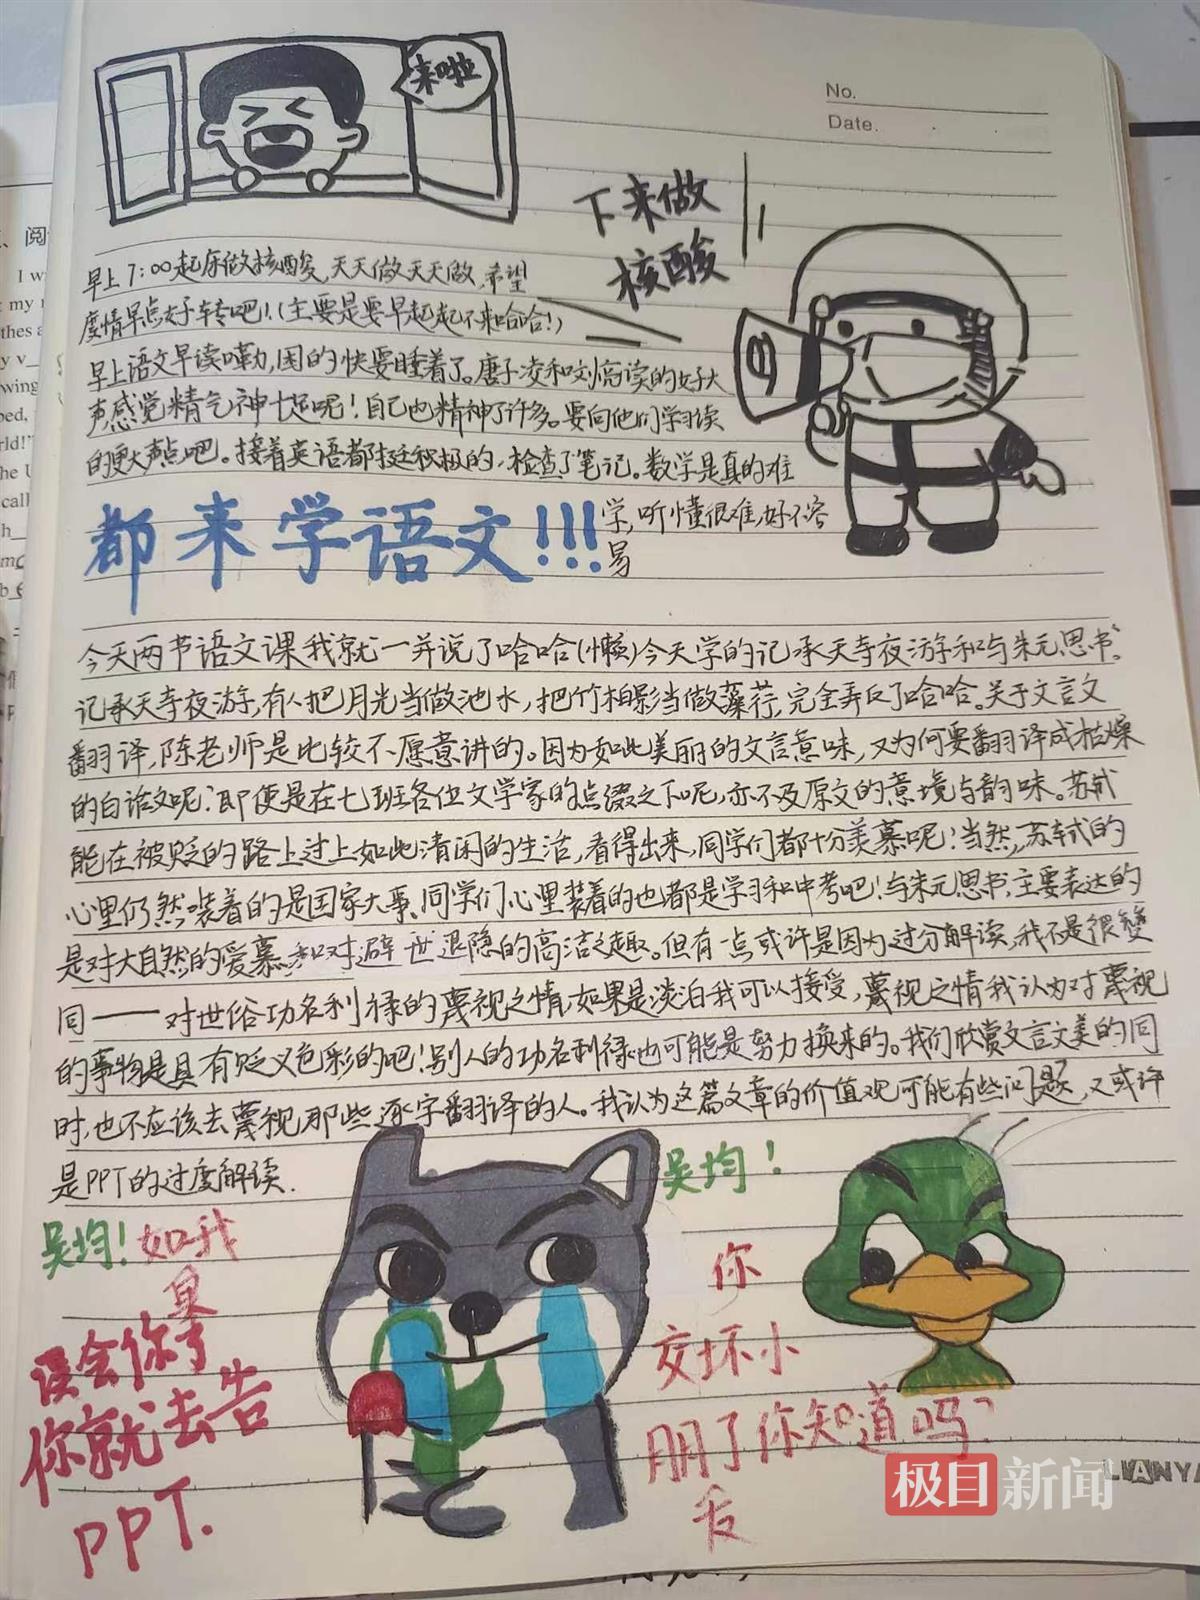 来啦
No.
Date.
下来做
核酸
早上7:00起床做核酸,天天做天天做,希望
疫情早点好转吧!(主要是要早起起不来哈哈!)
早上语文早读嘞,困的快要睡着了。唐子凌和刘熇读的好大
声感觉精气神十足呢!自己也精神了许多。要向他们学习读
的更大声点吧。接着英语都挺积极的,检查了笔记。数学是真的难
学,听懂很难,好不容
易
都来学语文!!!
今天两节语文课我就一并说了哈哈(懒)今天学的记承天寺夜游和与朱元思书。
记承天寺夜游,有人把月光当做池水,把竹柏影当做藻荇,完全弄反了哈哈。关于文言文
翻译,陈老师是比较不愿意讲的。因为如此美丽的文言意味,又为何要翻译成枯燥
的白话文呢?即便是在七班各位文学家的点缀之下呢,亦不及原文的意境与韵味。苏轼
能在被贬的路上过上如此清闲的生活,看得出来,同学们都十分羡慕呢!当然,苏轼的
心里仍然装着的是国家大事、同学们心里装着的也都是学习和中考吧!与朱元思书,主要表达的
是对大自然的爱慕,和对避世退隐的高洁之趣。但有一点或许是因为过分解读,我不是很赞
同——对世俗功名利禄的蔑视之情,如果是淡泊我可以接受,蔑视之情我认为对蔑视
的事物是具有贬义色彩的吧!别人的功名利禄也可能是努力换来的。我们欣赏文言文美的同
时,也不应该去蔑视那些逐字翻译的人。我认为这篇文章的价值观可能有些问题,又或许
是PPT的过度解读.
吴均!如我
是
误会你了
你就去告
PPT.
吴均!
你
交坏小
朋了你知道吗?
友
极目新闻
LIANYA